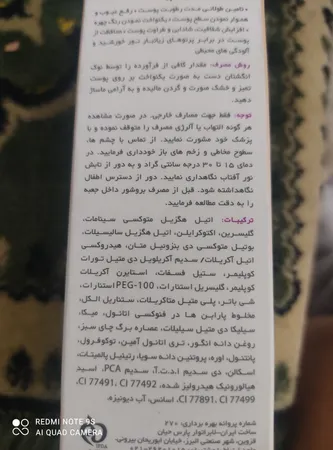 تامین طولانی مدت رطوبت پوست، رفع عیوب و
هموار نمودن سطح پوست، یکنواخت نمودن رنگ چهره
افزایش شفافیت، شادابی و طراوت پوست، محافظت از
پوست در برابر پرتوهای زیانبار نور خورشید و
آلودگی های محیطی
روش مصرف: مقدار کافی از فرآورده را توسط نوک
انگشتان دست به صورت یکنواخت بر روی پوست
تمیز و خشک صورت و گردن مالیده و به آرامی ماساژ
دهید.
توجه: فقط جهت مصارف خارجی. در صورت مشاهده
هر گونه التهاب یا آلرژی مصرف را متوقف نموده و با
پزشک خود مشورت نمایید. از تماس با چشم ها،
سطوح مخاطی و زخم های باز خودداری فرمایید. در
دمای ۱۵ تا ۳۰ درجه سانتی گراد و به دور از تابش
نور آفتاب نگاهداری نمایید. دور از دسترس اطفال
نگاهداشته شود. قبل از مصرف بروشور داخل جعبه
را به دقت مطالعه فرمایید.
ترکیبات: اتیل هگزیل متوکسی سینامات،
گلیسرین، اکتوکرایلن، اتیل هگزیل سالیسیلات،
بوتیل متوکسی دی بنزوئیل متان، هیدروکسی
اتیل آکریلات/ سدیم آکریلویل دی متیل تورات
کوپلیمر، ستیل فسفات، استایرن آکریلات
کوپلیمر، گلیسریل استئارات، PEG-100 استئارات،
شی باتر، پلی متیل متاکریلات، ستئاریل الکل،
مخلوط پارابن ها در فنوکسی اتانول، میکا،
سیلیکا دی متیل سیلیلات، عصاره برگ چای سبز،
روغن دانه انگور، تری اتانول آمین، توکوفرول،
پانتنول، اوره، پروتئین دانه سویا، رتینیل پالمیتات،
اسکالن، دی سدیم ا.د.ت.آ، سدیم PCA، اسید
هیالورونیک هیدرولیز شده، CI 77491, CI 77492
CI 77891, CI 77499، اسانس، آب دیونیزه.
شماره پروانه بهره برداری: ۲۷۰
ساخت ایران-لابراتوار پارس حیان
قزوین، شهر صنعتی البرز، خیابان ابوریحان بیرونی،
REDMI NOTE 9S
AI QUAD CAMERA